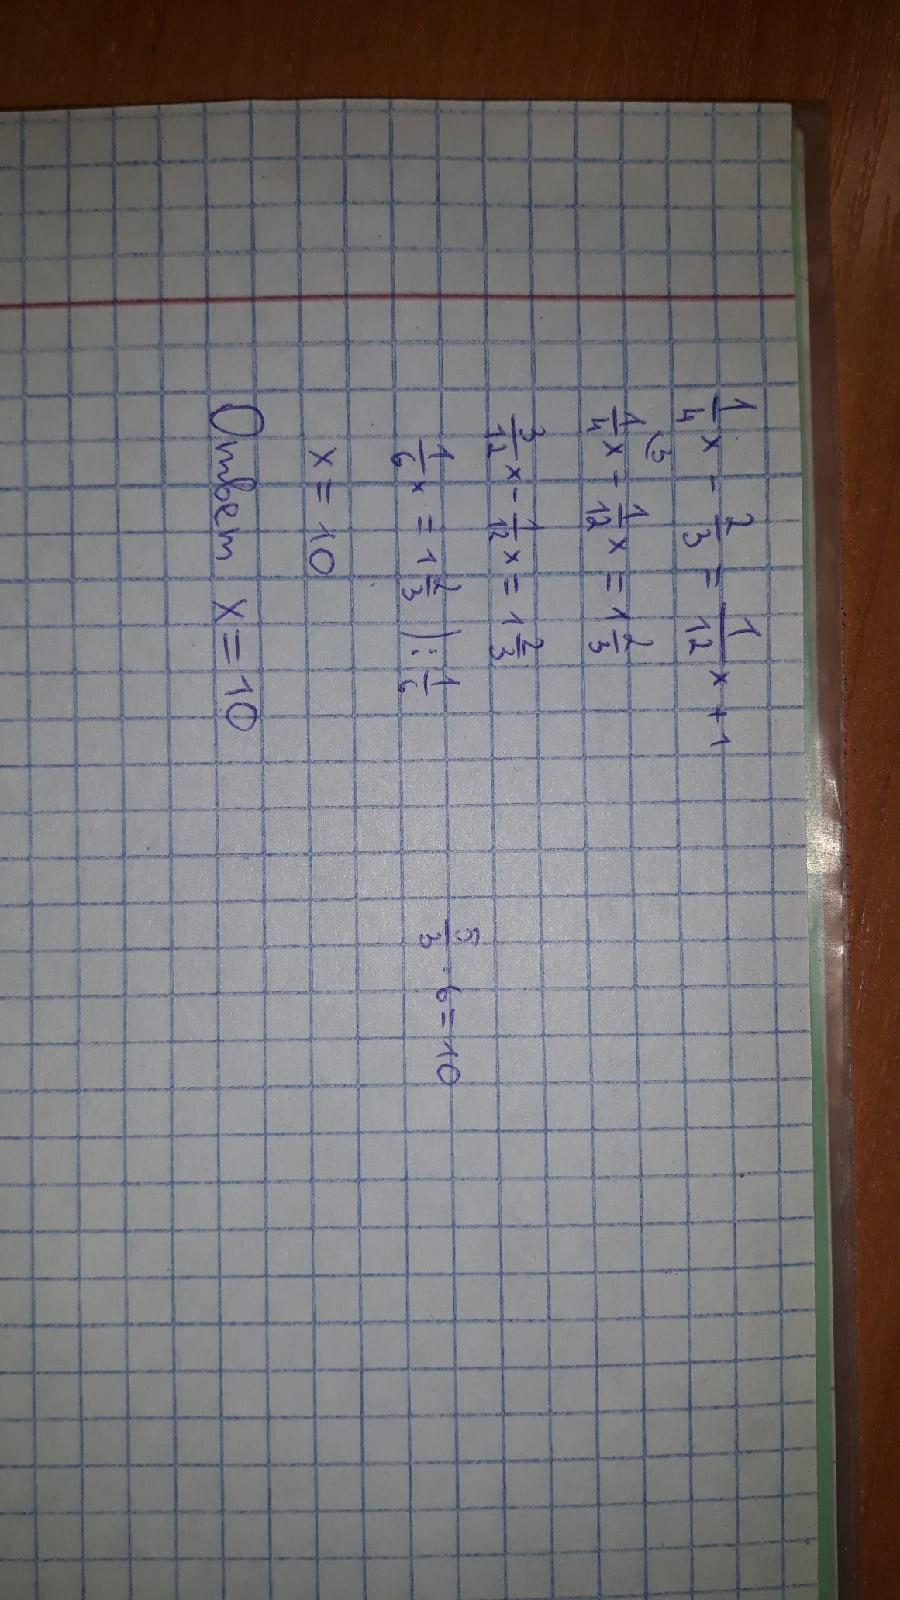 1/4 x - 2/3 = 1/12 x + 1
1/4 ⌣3 x - 1/12 x = 1 2/3
3/12 x - 1/12 x = 1 2/3
1/6 x = 1 2/3 ) : 1/6
5/3 · 6 = 10
x = 10
Ответ x = 10